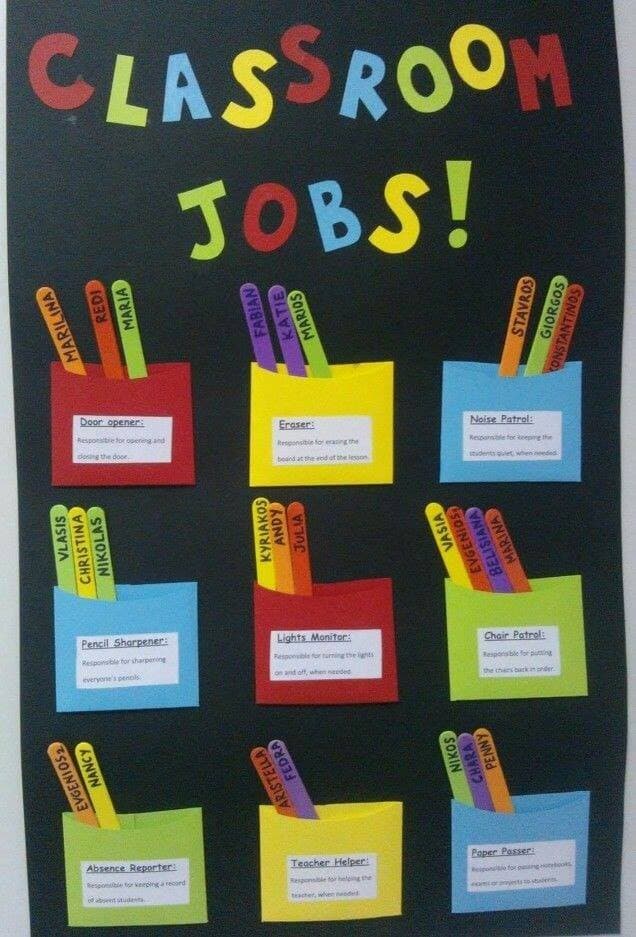 CLASSROOM
JOBS!
MARILINA
REDI
MARIA
Door opener:
Responsible for opening and
closing the door.
FABIAN
KATIE
MARIOS
Eraser:
Responsible for erasing the
board at the end of the lesson.
STAVROS
GIORGOS
KONSTANTINOS
Noise Patrol:
Responsible for keeping the
students quiet, when needed.
VLASIS
CHRISTINA
NIKOLAS
Pencil Sharpener:
Responsible for sharpening
everyone's pencils.
KYRIAKOS
ANDY
JULIA
Lights Monitor:
Responsible for turning the lights
on and off, when needed.
VASIA
EVGENIOS1
BELISIANA
MARINA
Chair Patrol:
Responsible for putting
the chairs back in order.
EVGENIOS2
NANCY
Absence Reporter:
Responsible for keeping a record
of absent students.
ARISTELLA
FEDRA
Teacher Helper:
Responsible for helping the
teacher, when needed.
NIKOS
CHARA
PENNY
Paper Passer:
Responsible for passing notebooks,
exams or projects to students.